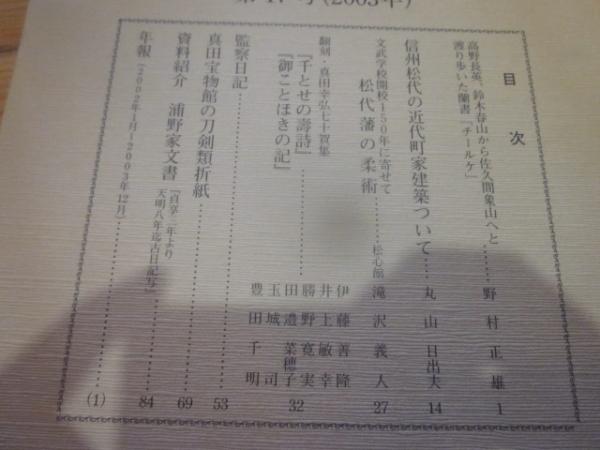 (2003年)
目次
高野長英、鈴木春山から佐久間象山へと
渡り歩いた蘭書『チールケ』……野村正雄 1
信州松代の近代町家建築ついて……丸山日出夫 14
文武学校開校150年に寄せて
松代藩の柔術……松心館 滝沢義人 27
翻刻・真田幸弘七十賀集
『千とせの壽詩』
『御ことほきの記』……
伊藤善隆
井上敏幸
勝野寛実
田邉菜穂子
玉城司
豊田千明
32
監察日記……53
真田宝物館の刀剣類折紙……69
資料紹介 浦野家文書『貞享二年より
天明八年迄古日記写』……84
年報(2002年1月~2003年12月)……(1)